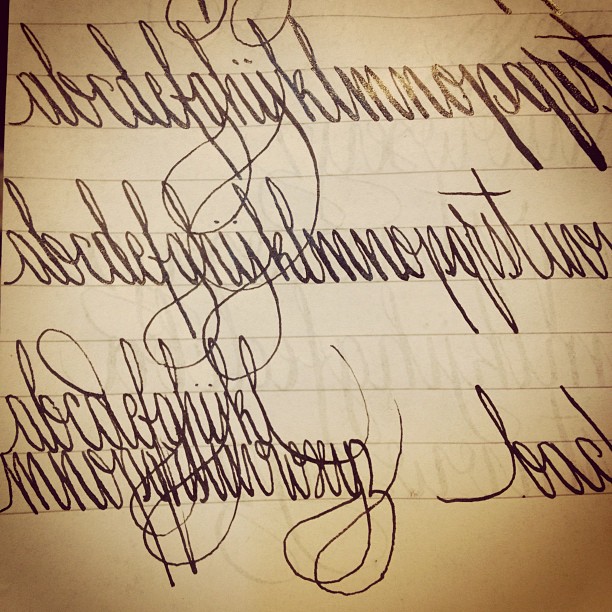 abcdefghijklmnopqrst
abcdefghijklmnopqrstuvw
abcdefghijkl
mnopqrstuvwxyz